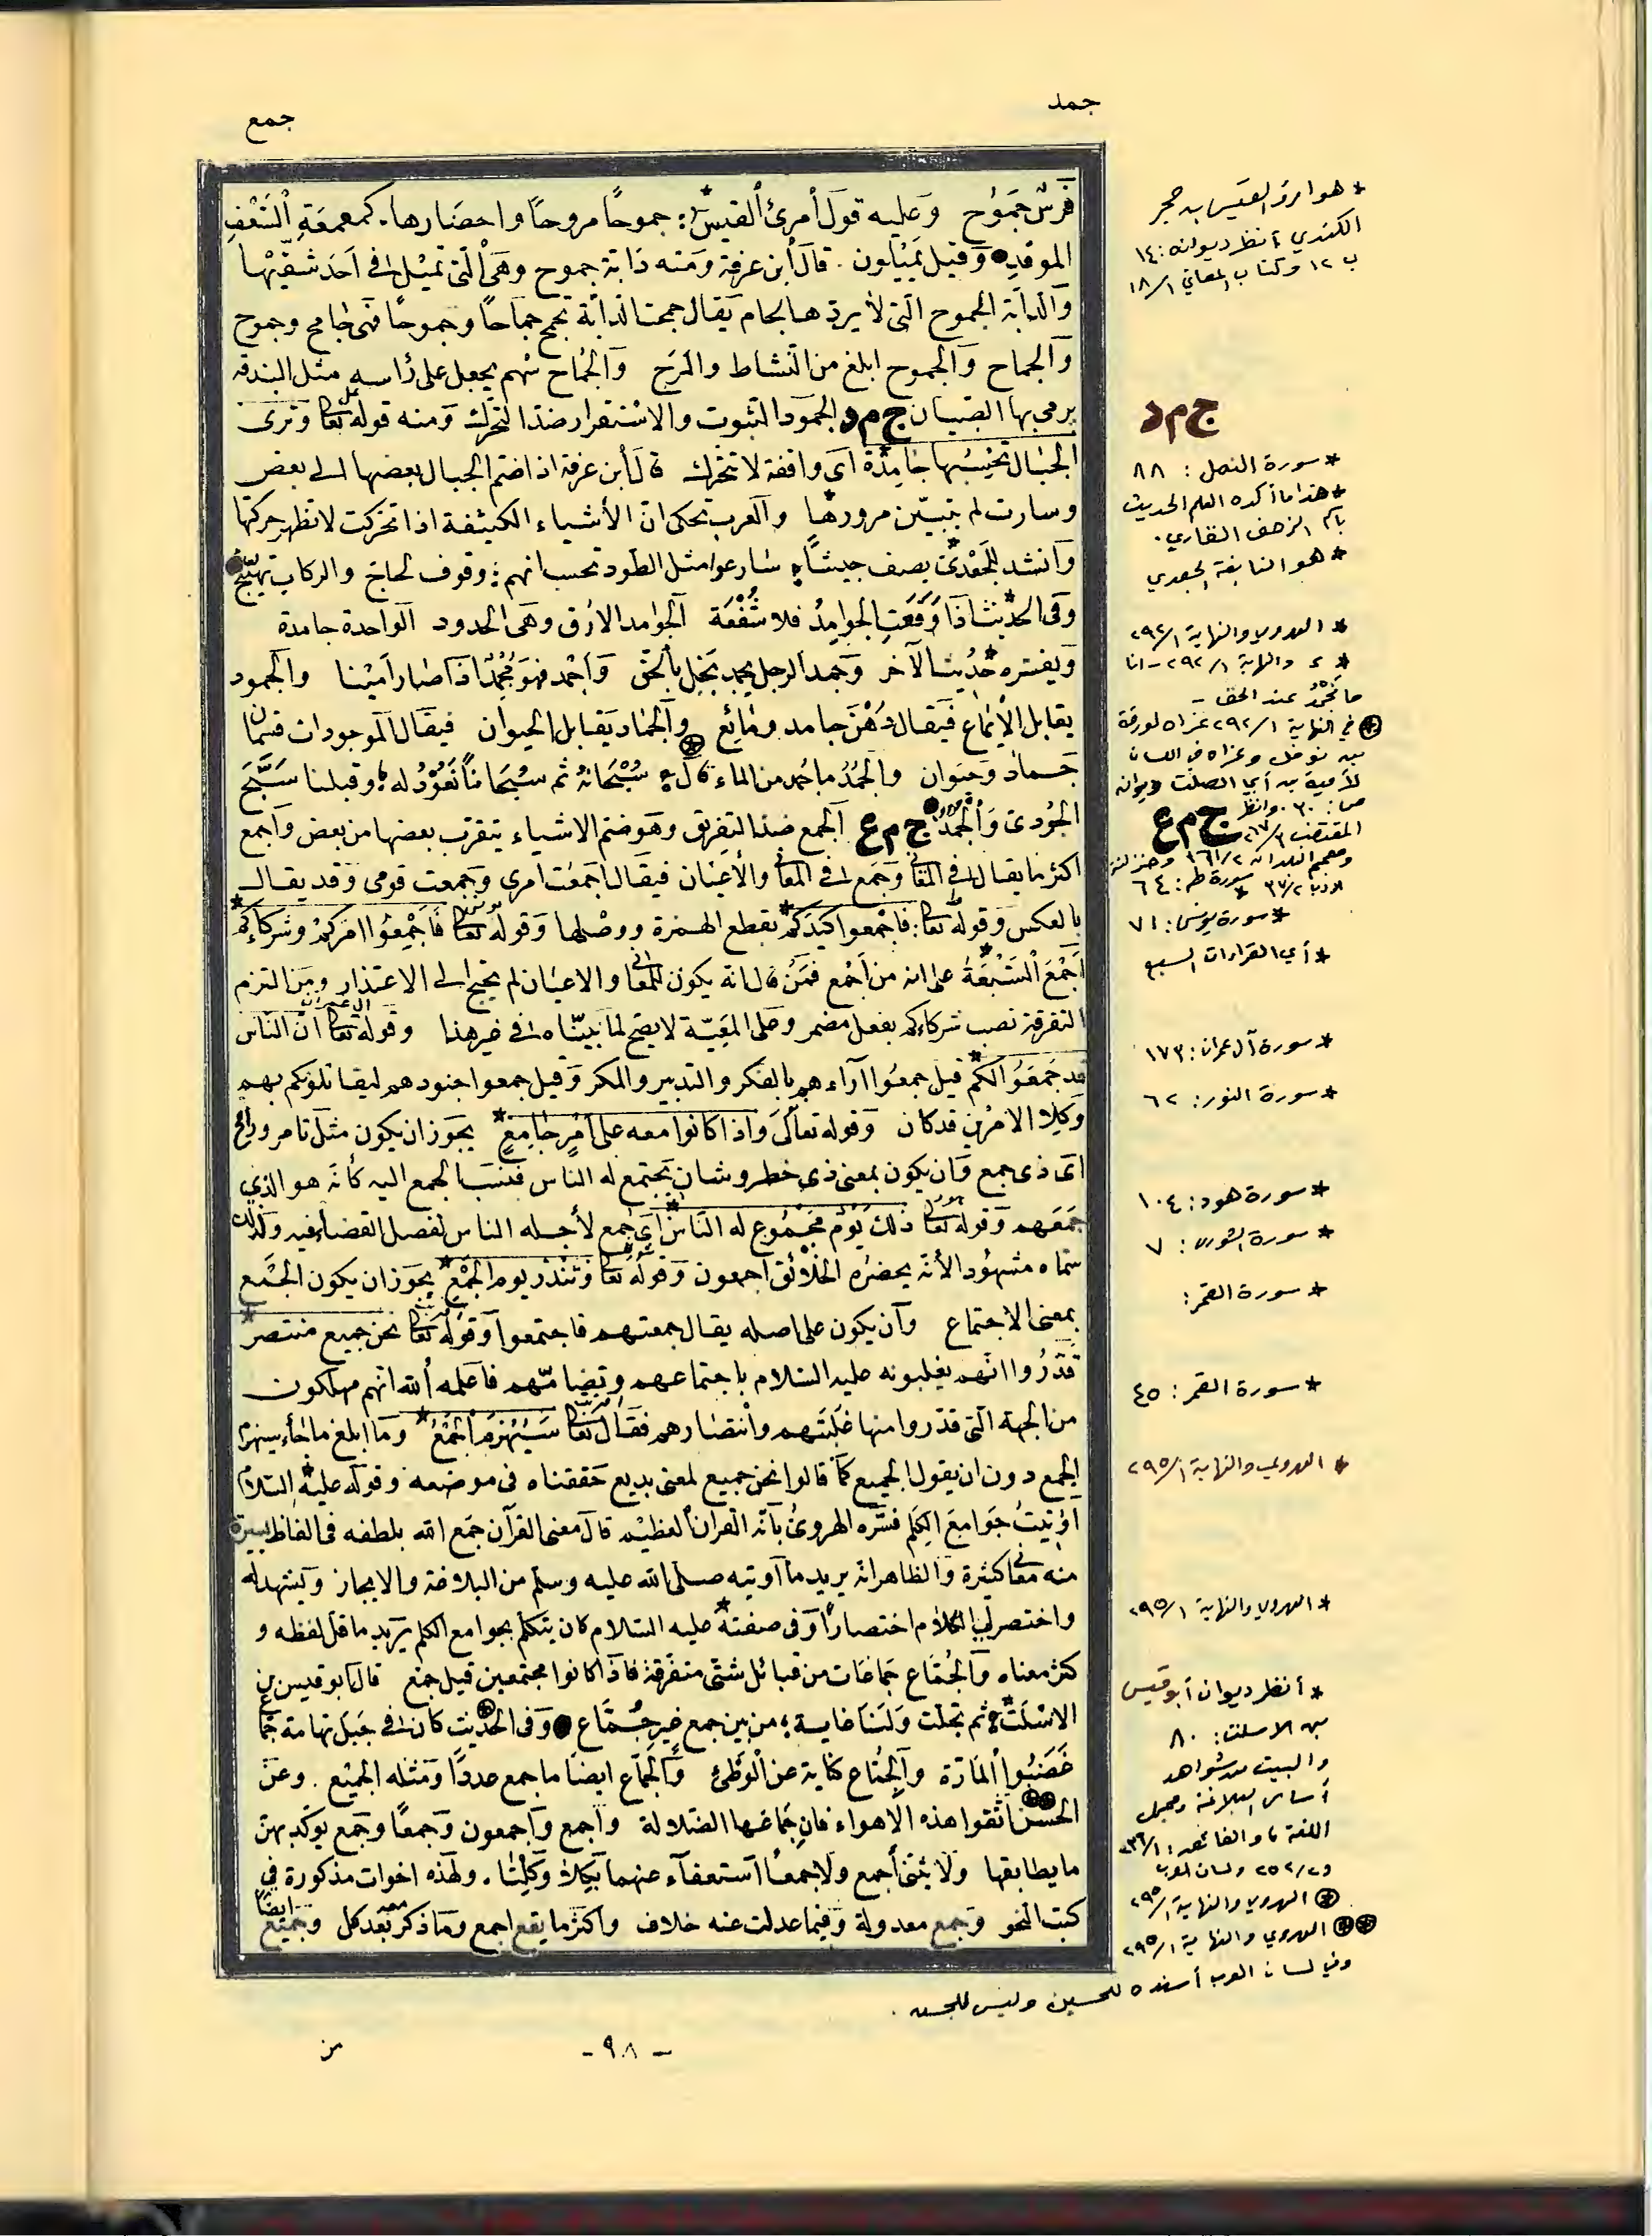 جمد
جمع
فرس جموح وعليه قول أمرئ ألقيس؛ جموحًا مروحًا واحضارها. كمعمعة ألسعف
الموقد وقيل يميلون. قال أبن عرفة ومنه دابة جموح وهى ألتى تميل فى أحد شقيها
وألدابة الجموح التى لا يردها لجام يقال جمحت الدابة تجمح جماحًا وجموحًا فهى جامح وجموح
وألجماح وألجموح ابلغ من النشاط والمرح وألجماح سهم يجعل على رأسه مثل البندقة
يرمى بها الصبيان ج م د الجمود الثبوت والاستقرار ضد التحرك ومنه قوله تعالى وترى
الجبال تحسبها جامدة اى واقفة لا تتحرك قال أبن عرفة اذا ضم الجبال بعضها الى بعض
وسارت لم يتبين مرورها وألعرب تحكى ان الأشياء الكثيفة اذا تحركت لا تظهر حركتها
وأنشد للجعدى يصف جيشًا؛ سارعوا مثل الطود تحسب انهم؛ وقوف لحاج والركاب تهملج
وفى الحديث اذا وقعت الجوامد فلا شفعة الجوامد الأرق وهى الحدود الواحدة جامدة
ويفسره حديث الآخر وجمد الرجل يجمد بخل بالحق وأجمد فهو مجمد اذا صار امينا والجمود
يقابل الإماع فيقال دهن جامد ومائع والجماد يقابل الحيوان فيقال الموجودات قسمان
جماد وحيوان والجمد ما جمد من الماء قال؛ سبحانه ثم سبحانًا نعوذ له؛ وقبلنا سبح
الجودى والجمد ج م ع الجمع ضد التفريق وهو ضم الاشياء بتقرب بعضها من بعض واجمع
اكثر ما يقال فى المعانى وجمع فى المعانى والأعيان فيقال اجمعت امرى وجمعت قومى وقد يقال
بالعكس وقوله تعالى: فاجمعوا كيدكم بقطع الهمزة ووصلها وقوله تعالى فأجمعوا امركم وشركاءكم
أجمع السبعة على انه من أجمع فمن قال انه يكون للمعانى والاعيان لم يحتج الى الاعتذار ومن التزم
التفرقة نصب شركاءكم بفعل مضمر وعلى المعية لا يصح لما بيناه فى غير هذا وقوله تعالى ان الناس
قد جمعوا لكم قيل جمعوا آراءهم بالفكر والتدبير والمكر وقيل جمعوا جنودهم ليقاتلوكم بهم
وكلا الامرين قد كان وقوله تعالى واذا كانوا معه على أمر جامع يجوز ان يكون مثل تامر ورامح
اى ذى جمع وان يكون بمعنى ذى خطر وشان يجتمع له الناس فنسب الجمع اليه كأنه هو الذي
جمعهم وقوله تعالى ذلك يوم مجموع له الناس اي جمع لأجله الناس لفصل القضاء فيه ولذلك
سماه مشهودا لأنه يحضره الخلائق اجمعون وقوله تعالى وتنذر يوم الجمع يجوز ان يكون الجمع
بمعنى الاجتماع وآن يكون على اصله يقال جمعتهم فاجتمعوا وقوله تعالى نحن جميع منتصر
قدروا انهم يغلبونه عليه السلام باجتماعهم وتضامهم فاعلمه ألله انهم مهلكون
من الجهة التى قدروا منها غلبتهم وانتصارهم فقال تعالى سيهزم الجمع وما ابلغ ما جاء سيهزم
الجمع دون ان يقول الجميع كما قالوا نحن جميع لمعنى بديع حققناه فى موضعه وقوله عليه السلام
أوتيت جوامع الكلم فسره الهروى بانه القران العظيم قال معنى القرآن جمع الله بلطفه فى الفاظ يسيرة
منه معانى كثيرة والظاهر انه يريد ما أوتيه صلى الله عليه وسلم من البلاغة والايجاز ويشهد له
واختصر لي الكلام اختصارًا وفى صفته عليه السلام كان يتكلم بجوامع الكلم يريد ما قل لفظه و
كثر معناه وألجماع جماعات من قبائل شتى متفرقة فاذا كانوا مجتمعين قيل جمع قال ابو قيس بن
الاسلت؛ ثم تجلت ولنا غاية؛ من بين جمع غير جماع وفى الحديث كان فى جبل تهامة جماع
غصبوا المارة والجماع كناية عن الوطئ والجماع ايضا ما جمع عددًا ومثله الجميع. وعن
الحسن اتقوا هذه الاهواء فان جماعها الضلالة واجمع واجمعون وجمعاء وجمع يوكد بهن
ما يطابقها ولا يثنى أجمع ولا جمعاء استغناء عنهما بكلا وكلتا. ولهذه اخوات مذكورة في
كتب النحو وجمع معدولة وفيما عدلت عنه خلاف واكثر ما يقع اجمع وما ذكر معه بعد كل وجميع ايضًا
* هو امرؤ القيس بن حجر
الكندي، أنظر ديوانه: ١٤
ب ١٢ وكتاب المعاني ١/ ١٨
ج م د
* سورة النمل: ٨٨
* هذا ما أكده العلم الحديث
* هو النابغة الجعدي
* الهروي والنهاية ١/ ٢٩٢
* ء والنهاية ١/ ٢٩٢ - انا
ما نجمد عند الحق -
في النهاية ١/ ٢٩٢ عزاه لورقة
بن نوفل وعزاه في اللسان
لأمية بن أبي الصلت ديوانه
ص: ٣٠. وانظر
ج م ع
المقتضب ٣/ ٢١٧
ومعجم البلدان ٢/ ١٦١ وخزانة
الأدب ٢/ ٣٧ * سورة طه: ٦٤
* سورة يونس: ٧١
* أي القراءات السبع
* سورة آل عمران: ١٧٣
* سورة النور: ٦٢
* سورة هود: ١٠٤
* سورة الشورى: ٧
* سورة القمر:
* سورة القمر: ٤٥
* الهروي والنهاية ١/ ٢٩٥
* الهروي والنهاية ١/ ٢٩٥
* أنظر ديوان أبو قيس
بن الاسلت: ٨٠
والبيت من شواهد
أساس البلاغة ومجمل
اللغة، والفائق: ١/ ٢٣٦
و ٢/ ٢٥٢ ولسان العرب
الهروي والنهاية ١/ ٢٩٥
الهروي والنهاية ١/ ٢٩٥
وفي لسان العرب أسنده للحسين وليس للحسن.
- ٩٨ -
من